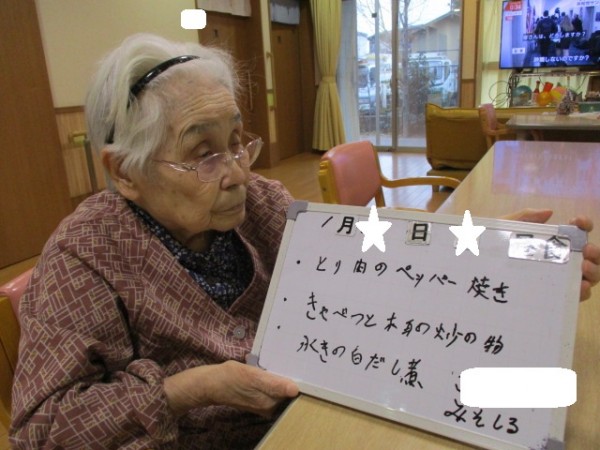 1月 日
・とり肉のペッパー焼き
・きゃべつと木耳の炒の物
・ふきの白だし煮
みそしる